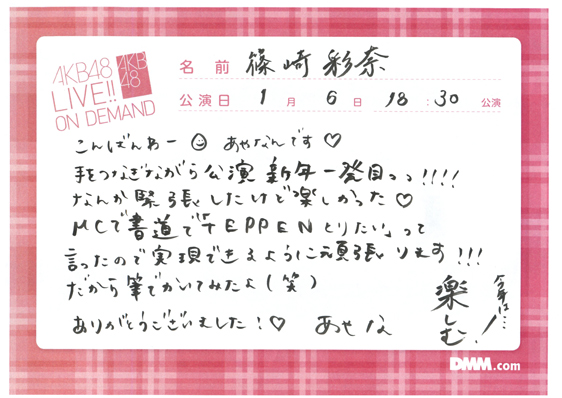 AKB48
LIVE!!
ON DEMAND
AKB
48
名前 篠崎彩奈
公演日 1月6日 18:30 公演
こんばんわー☺ あやなんです♡
手をつなぎながら公演 新年一発目っっ!!!!
なんか緊張したけど楽しかった♡
MCで書道で「TEPPENとりたい」って
言ったので実現できるように頑張ります!!!
だから筆でかいてみたよ(笑)
ありがとうございました!♡ あやな
今年は…
楽しむ!
DMM.com